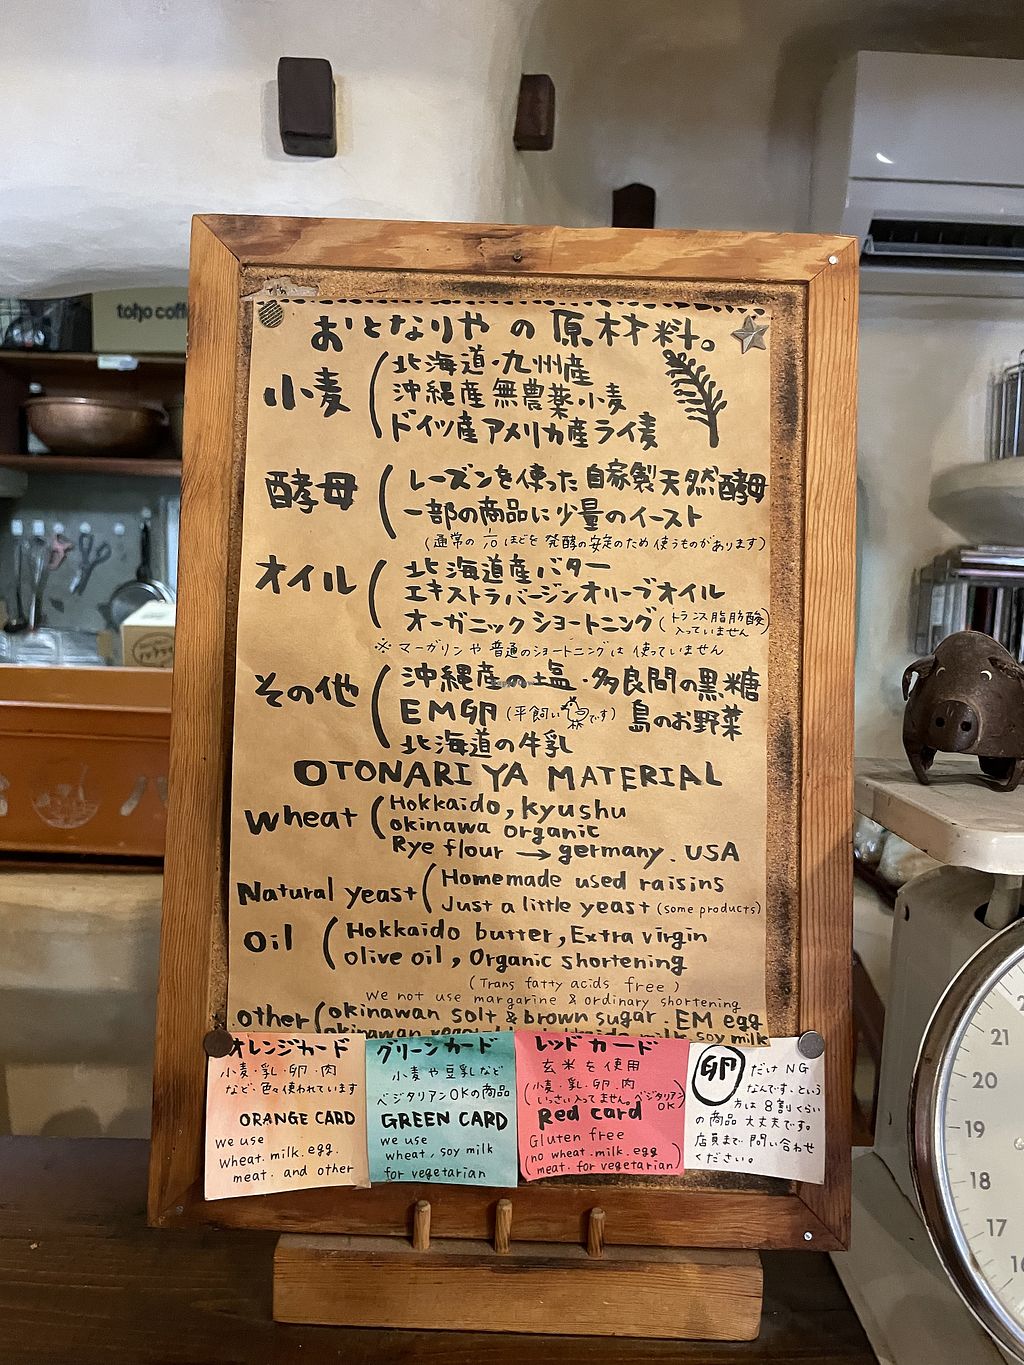 toho coff
おとなりやの原材料。
小麦
北海道・九州産
沖縄産無農薬小麦
ドイツ産アメリカ産ライ麦
酵母
レーズンを使った自家製天然酵母
一部の商品に少量のイースト
(通常の 1/10 ほどを発酵の安定のため使うものがあります)
オイル
北海道産バター
エキストラバージンオリーブオイル
オーガニックショートニング(トランス脂肪酸
入っていません)
※マーガリンや普通のショートニングは使っていません
その他
沖縄産の塩・多良間の黒糖
EM卵(平飼いです) 島のお野菜
北海道の牛乳
OTONARI YA MATERIAL
Wheat
Hokkaido, kyushu
okinawa organic
Rye flour → germany. USA
Natural yeast
Homemade used raisins
Just a little yeast (some products)
Oil
Hokkaido butter, Extra virgin
olive oil, Organic shortening
(Trans fatty acids free)
We not use margarine & ordinary shortening
other
okinawan solt & brown sugar. EM egg
okinawan milk, soy milk
オレンジカード
小麦・乳・卵・肉
など・色々使われています
ORANGE CARD
we use
wheat. milk. egg.
meat. and other
グリーンカード
小麦や豆乳など
ベジタリアンOKの商品
GREEN CARD
we use
wheat, soy milk
for vegetarian
レッドカード
玄米を使用
(小麦・乳・卵・肉
いっさい入ってません。ベジタリアン
OK)
Red card
Gluten free
(no wheat. milk. egg
meat. for vegetarian)
卵だけNG
なんです、という
方は8割くらい
の商品大丈夫です。
店員まで問い合わせ
ください。
21
20
19
18
17
16